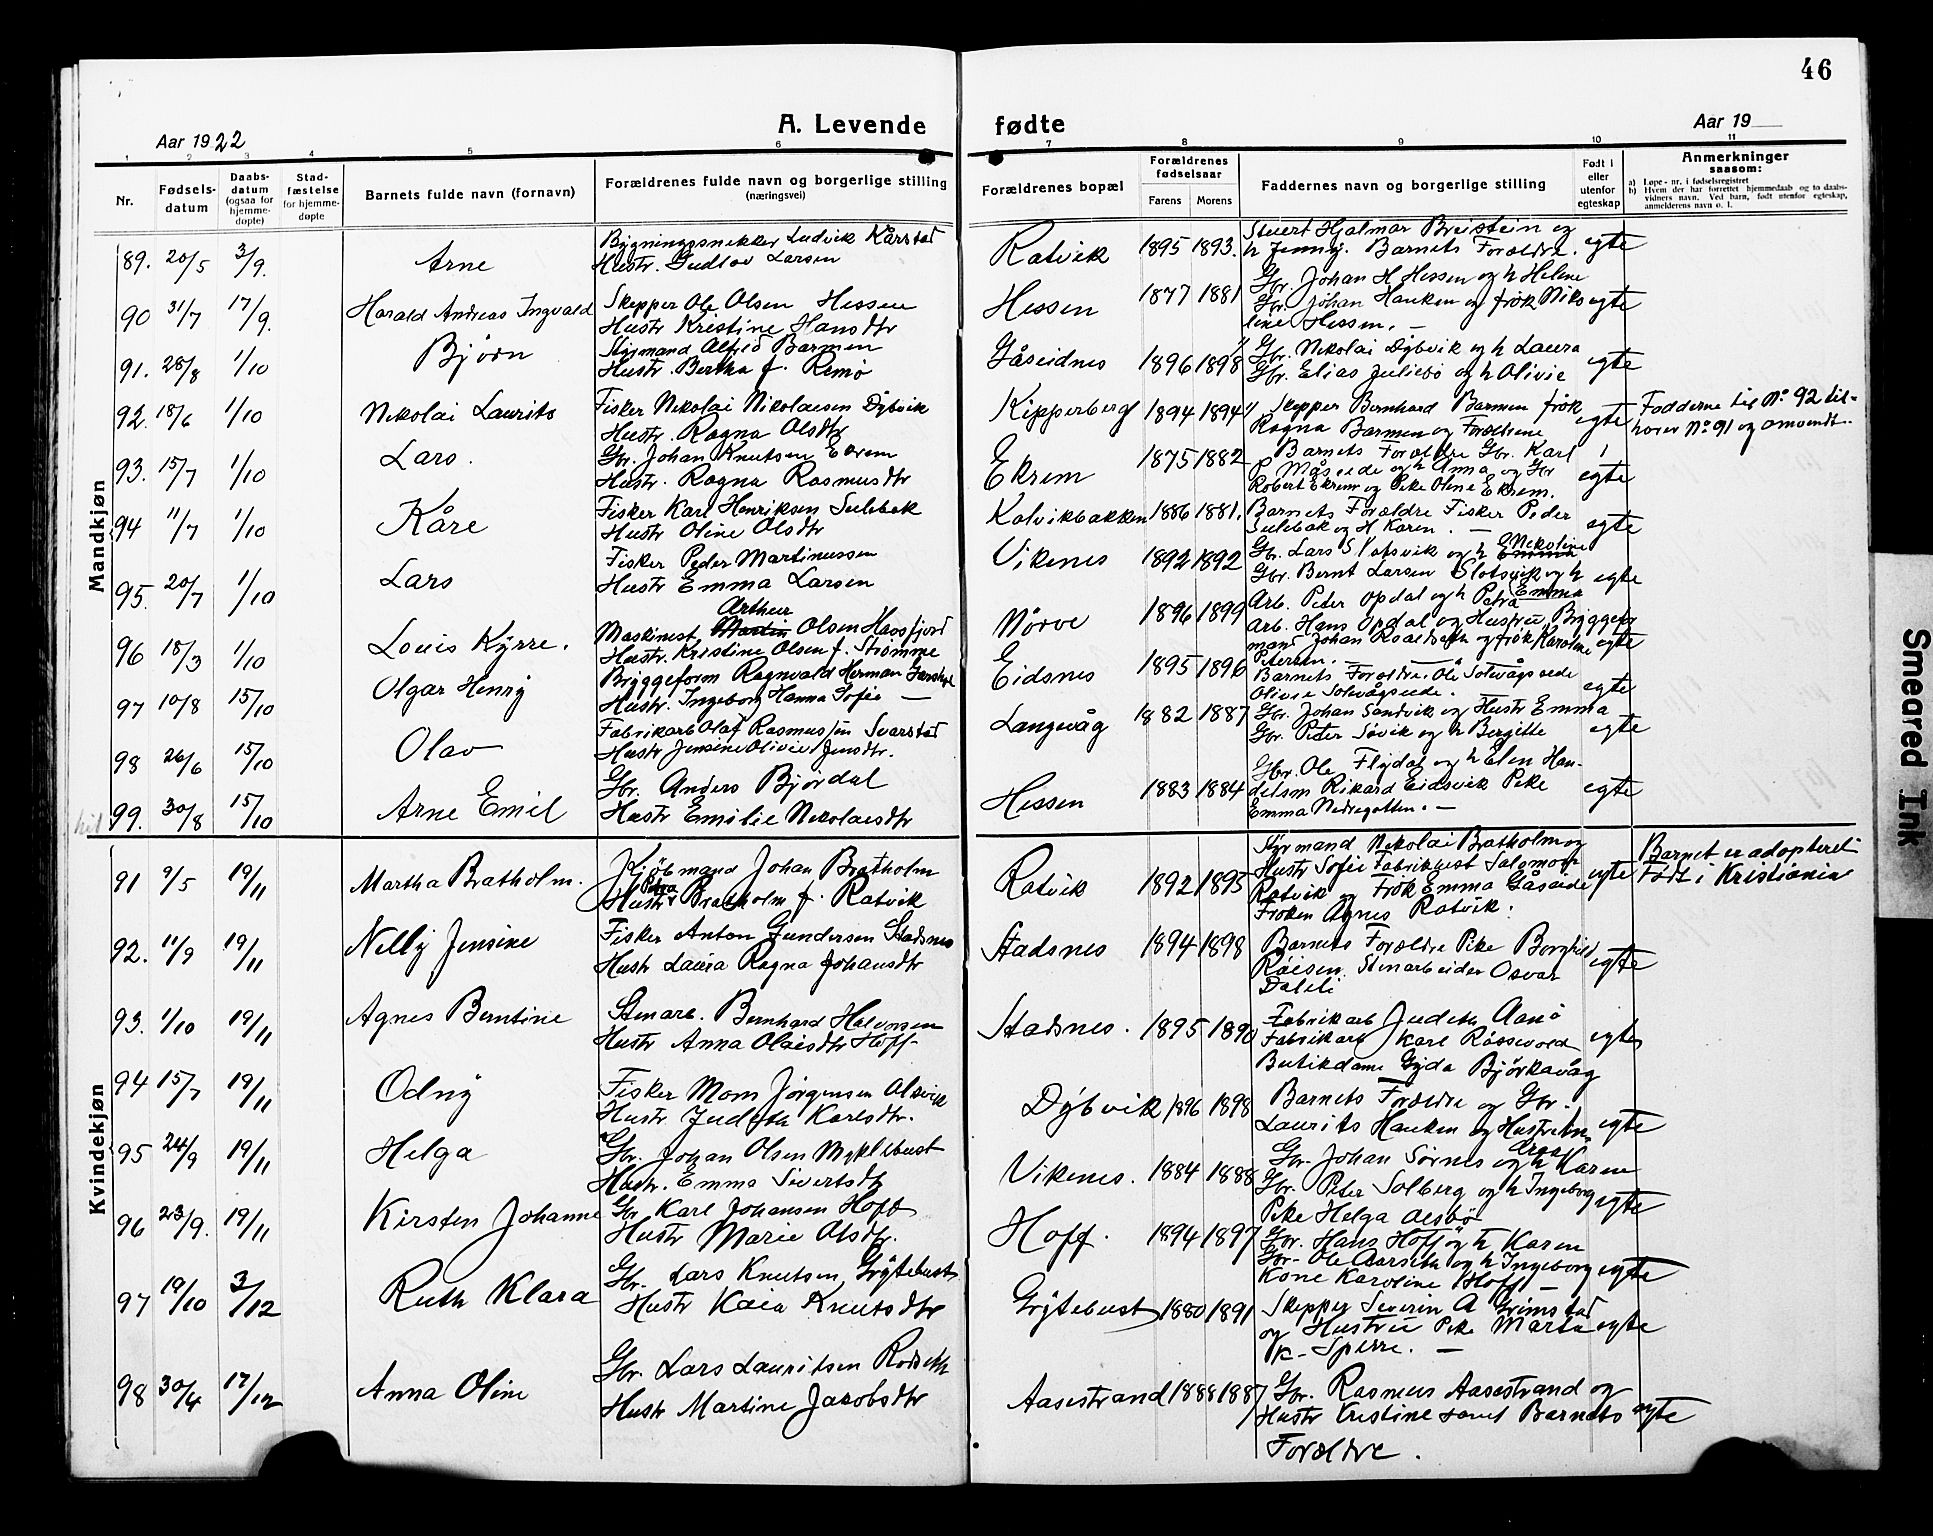 46
Aar 1922
A. Levende
fødte
Aar 19
1 2 3 4 5 6 7 8 9 10 11
Nr.
Fødsels-
datum
Daabs-
datum
(ogsaa for
hjemme-
døpte)
Stad-
fæstelse
for hjemme-
døpte
Barnets fulde navn (fornavn)
Forældrenes fulde navn og borgerlige stilling
(næringsvei)
Forældrenes bopæl
Forældrenes
fødselsaar
Farens
Morens
Faddernes navn og borgerlige stilling
Født i
eller
utenfor
egteskap
Anmerkninger
saasom:
a) Løpe-nr. i fødselsregistret
b) Hvem der har forrettet hjemmedaab og to daabs-
vidners navn. Ved barn, født utenfor egteskap,
anmelderens navn o. l.
Mandkjøn
89. 20/5 3/9. Arne
Bygningssnekker Ludvik Kårstad
Hustr. Gudlov Larsen
Ratvik 1895 1893.
Stuert Hjalmar Breistein og
h Jenny. Barnets Forældre. egte
90 31/7 17/9. Harald Andreas Ingvald
Skepper Ole Olsen Hessen
Hustr Kristine Hansdtr
Hessen 1877 1881
Gbr. Johan H Hessen og h Helene
Gbr. Johan Hauken og frøk Niko egte
line Hessen. —
91. 28/8 1/10 Bjørn
Styrmand Alfred Barmen
Hustr. Bertha f. Remø
Gåseidnes 1896 1898
Gbr. Nikolai Dybvik og h Laura
Gbr. Elias Juliebø og h Olivie egte
92. 18/6 1/10 Nikolai Laurits
Fisker Nikolai Nikolaisen Dybvik
Hustr. Ragna Olsdtr
Kipperberg 1894 1894
Skepper Bernhard Barmen frøk
Ragna Barmen og Forældrene egte
Fadderne til No 92 til-
hører No 91 og omvendt.
93. 15/7 1/10 Lars.
Gbr. Johan Knutsen Ekrem
Hustr. Ragna Rasmusdtr
Ekrem 1875 1882
Barnets Forældre Gbr. Karl
P. Måseide og h Anna og Gbr
Robert Ekrem og Pike Oline Ekrem. egte
94 11/7 1/10 Kåre
Fisker Karl Henriksen Sulebak
Hustr Oline Olsdtr
Kalvikbakken 1886 1881.
Barnets Forældre Fisker Peder
Sulebak og H Karen. — egte
95. 20/7 1/10 Lars
Fisker Peder Martinussen
Hustr Emma Larsen
Vikenes 1892 1892
Gbr. Lars Slotsvik og h Nikoline
Gbr. Bernt Larsen Slotsvik og h egte
Emma
96 18/3 1/10 Louis Kyrre.
Maskinest Arthur Olsen Hassfjord
Hustr. Kristine Olsen f. Strømme
Nörve 1896 1899
Arb. Peter Opdal og h Petra
Arb. Hans Opdal og Hustru Bryggefor
mand Johan Roaldseth og frøk Karoline egte
Petersen. —
97 10/8 15/10 Olgar Henry
Bryggeform Ragnvald Herman
Hustr. Ingeborg Hanna Sofie —
Eidsnes 1895 1896
Barnets Forældre. Ole Solevågseide
Olivie Solevågseide. egte
98 26/6 15/10 Olav
Fabrikarb Olaf Rasmussen Svarstad
Hustr Jensine Olivie Jensdtr.
Langevåg 1882 1887
Gbr. Johan Sandvik og Hustr Emma
Gbr. Peter Søvik og h Bergitte egte
99. 30/8 15/10 Arne Emil
Gbr. Anders Bjørdal
Hustr Emilie Nikolaisdtr
Hessen 1883 1884
Gbr. Ole Flydal og h Elen Han-
delsm Rikard Eidsvik Pike egte
Emma Nedregotten. —
Kvindekjøn
91 9/5 19/11 Martha Bratholm.
Kjøbmand Johan Bratholm
Hustr Petra Bratholm f. Ratvik
Ratvik 1892 1895
Styrmand Nikolai Bratholm og
Hustr Sofie Fabrikbest Salomon
Ratvik og Frøk Emma Gåseide egte
Frøken Agnes Ratvik.
Barnet er adopteret
Født i Kristiania
92. 11/9 19/11 Nelly Jensine
Fisker Anton Gundersen Stadsnes
Hustr Laura Ragna Johansdtr
Stadsnes 1894 1898
Barnets Forældre Pike Borghild
Røisen. Stenarbeider Osvar egte
Dalsli
93. 1/10 19/11 Agnes Berntine
Stenarb. Bernhard Halvorsen
Hustr Anna Olaisdtr Hoff
Stadsnes. 1895 1890
Fabrikarb Judith Aanø
Fabrikarb Karl Røssevold egte
Butikdame Gyda Bjørkavåg
94 15/7 19/11 Odny
Fisker Mons Jørgensen Alsvik
Hustr Judith Karlsdtr.
Dybvik 1896 1898
Barnets Forældre og Gbr.
Laurits Hauken og Hustru egte
95 24/9 19/11 Helga
Gbr. Johan Olsen Myklebust
Hustr. Emma Sivertsdtr
Vikenes. 1884 1888
Gbr Johan Sørnes og h Karen
Gbr. Peter Solberg og h Ingeborg egte
Pike Helga Aesbø
96 23/9. 19/11 Kirsten Johanne
Gbr. Karl Johansen Hoff
Hustr Marie Olsdtr.
Hoff. 1894 1897
Gbr. Hans Hoff og h Karen
Gbr. Ole Aarseth og h Ingeborg egte
Kone Karoline Hoff —
97 19/10 3/12 Ruth Klara
Gbr. Lars Knutsen Grytebust
Hustr Kaia Knutsdtr
Grytebust 1880 1891
Skepper Severin A Grimstad
og Hustru Pike Marta egte
K. Sperre. —
98 30/4 17/12 Anna Oline
Gbr. Lars Lauritsen Rodseth
Hustr Martine Jacobsdtr
Aasestrand 1888 1887
Gbr. Rasmus Aasestrand og
Hustr Kristine samt Barnets egte
Forældre.
Smeared Ink